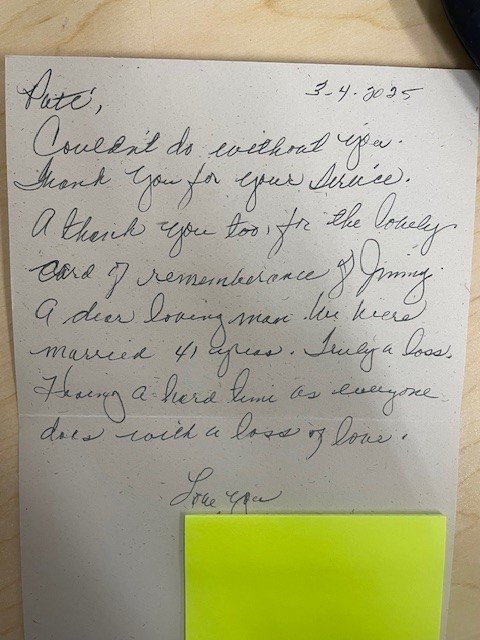 Pate', 3-4-2025
Couldn't do without you.
Thank You for your service.
A thank you too, for the lovely
card of rememberance of Jimmy.
A dear loving man. We were
married 41 years. Truly a loss.
Having a hard time as everyone
does with a loss of love.
Love you